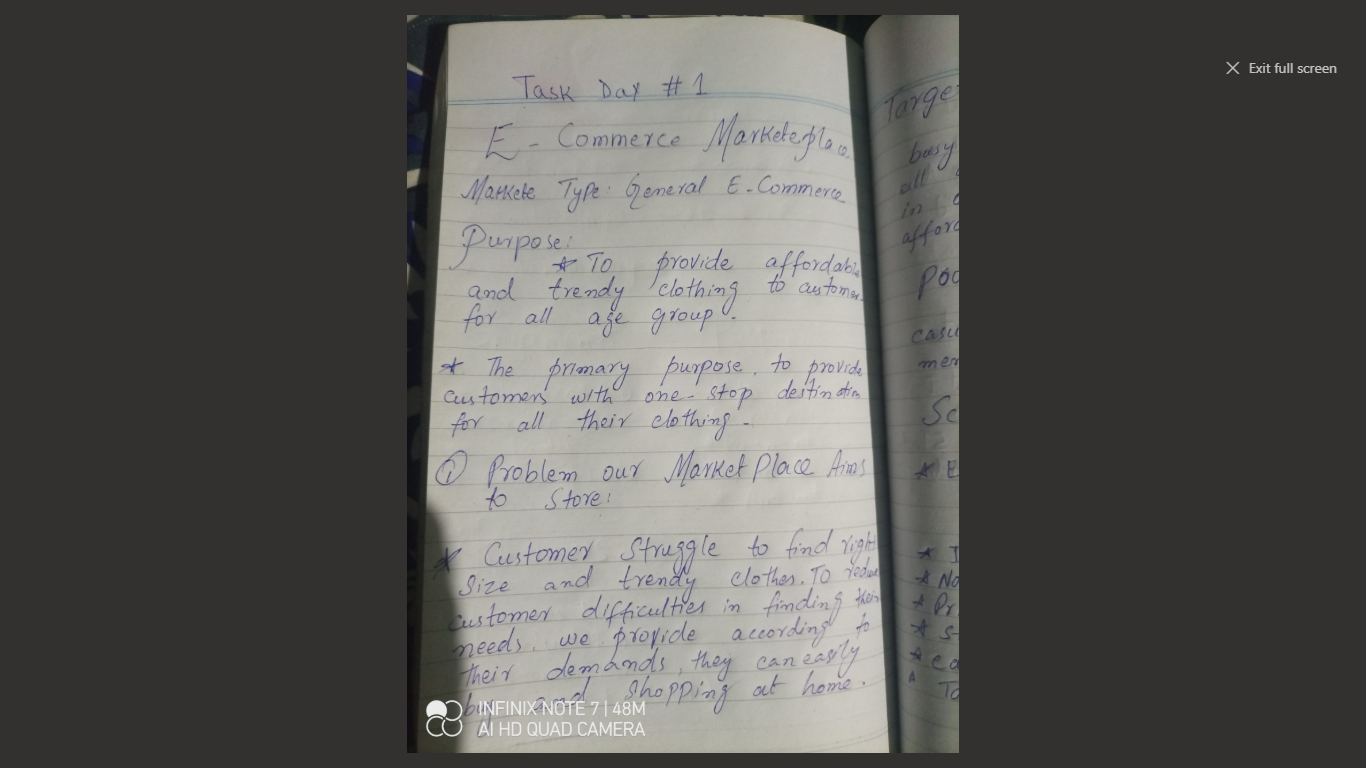 Task Day # 1
E - Commerce Marketeplace
Markete Type: General E-Commerce
Purpose:
* To provide affordable
and trendy clothing to customer
for all age group.
* The primary purpose, to provide
customers with one-stop destination
for all their clothing -
① Problem our MarketPlace Aims
to Store:
* Customer Struggle to find right
Size and trendy clothes. To reduce
customer difficulties in finding their
needs, we provide according to
their demands, they can easily
buy and shopping at home.
INFINIX NOTE 7 | 48M
AI HD QUAD CAMERA
Targe
busy
all
in
afford
casu
men
Sc
* No
* Pr
* S-
Exit full screen